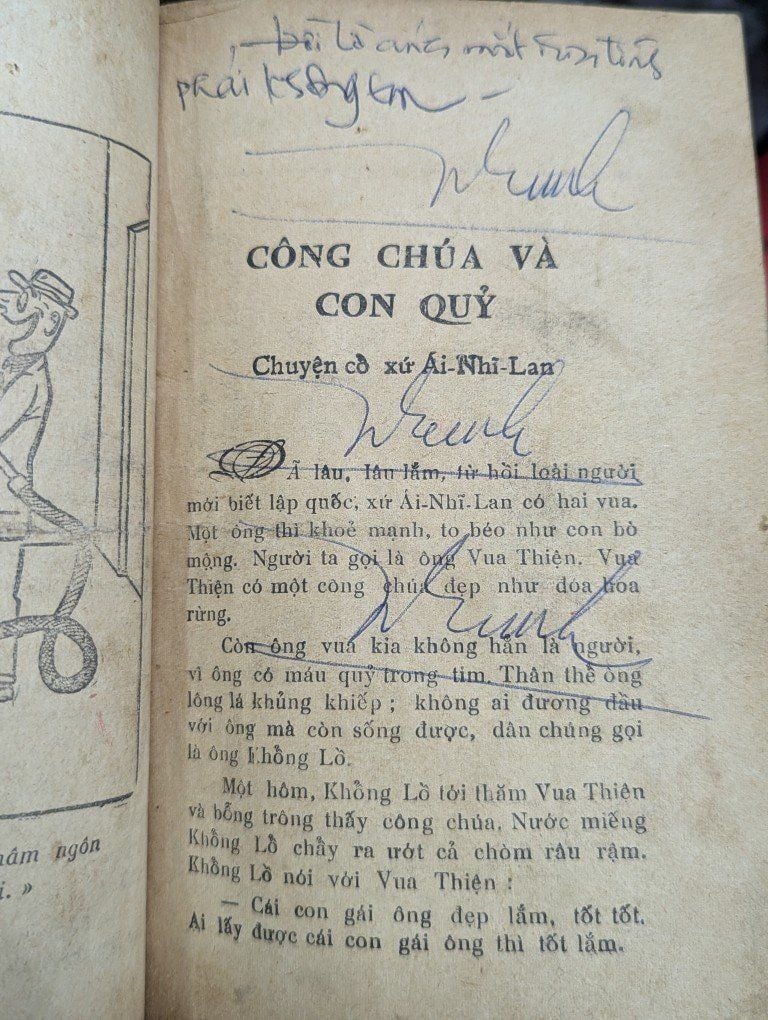 phải không em
CÔNG CHÚA VÀ
CON QUỶ
Chuyện cồ xứ Ái-Nhĩ-Lan
ĐÃ lâu, lâu lắm, từ hồi loài người
mới biết lập quốc, xứ Ái-Nhĩ-Lan có hai vua.
Một ông thì khoẻ mạnh, to béo như con bò
mộng. Người ta gọi là ông Vua Thiện. Vua
Thiện có một công chúa đẹp như đóa hoa
rừng.
Còn ông vua kia không hẳn là người,
vì ông có máu quỷ trong tim. Thân thề ông
lông lá khủng khiếp ; không ai đương đầu
với ông mà còn sống được, dân chúng gọi
là ông Khồng Lồ.
Một hôm, Khồng Lồ tới thăm Vua Thiện
và bỗng trông thấy công chúa. Nước miếng
Khồng Lồ chầy ra ướt cả chòm râu rậm.
Khồng Lồ nói với Vua Thiện :
— Cái con gái ông đẹp lắm, tốt tốt.
Ai lấy được cái con gái ông thì tốt lắm.
hâm ngôn
i. »